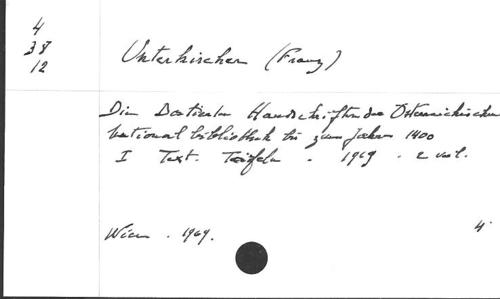 4
38
12
Unterkircher (Franz)
Die Datierten Handschriften der Österreichischen
Nationalbibliothek bis zum Jahre 1400
I Text. Tafeln. 1969. 2 vol.
Wien. 1969.
4°